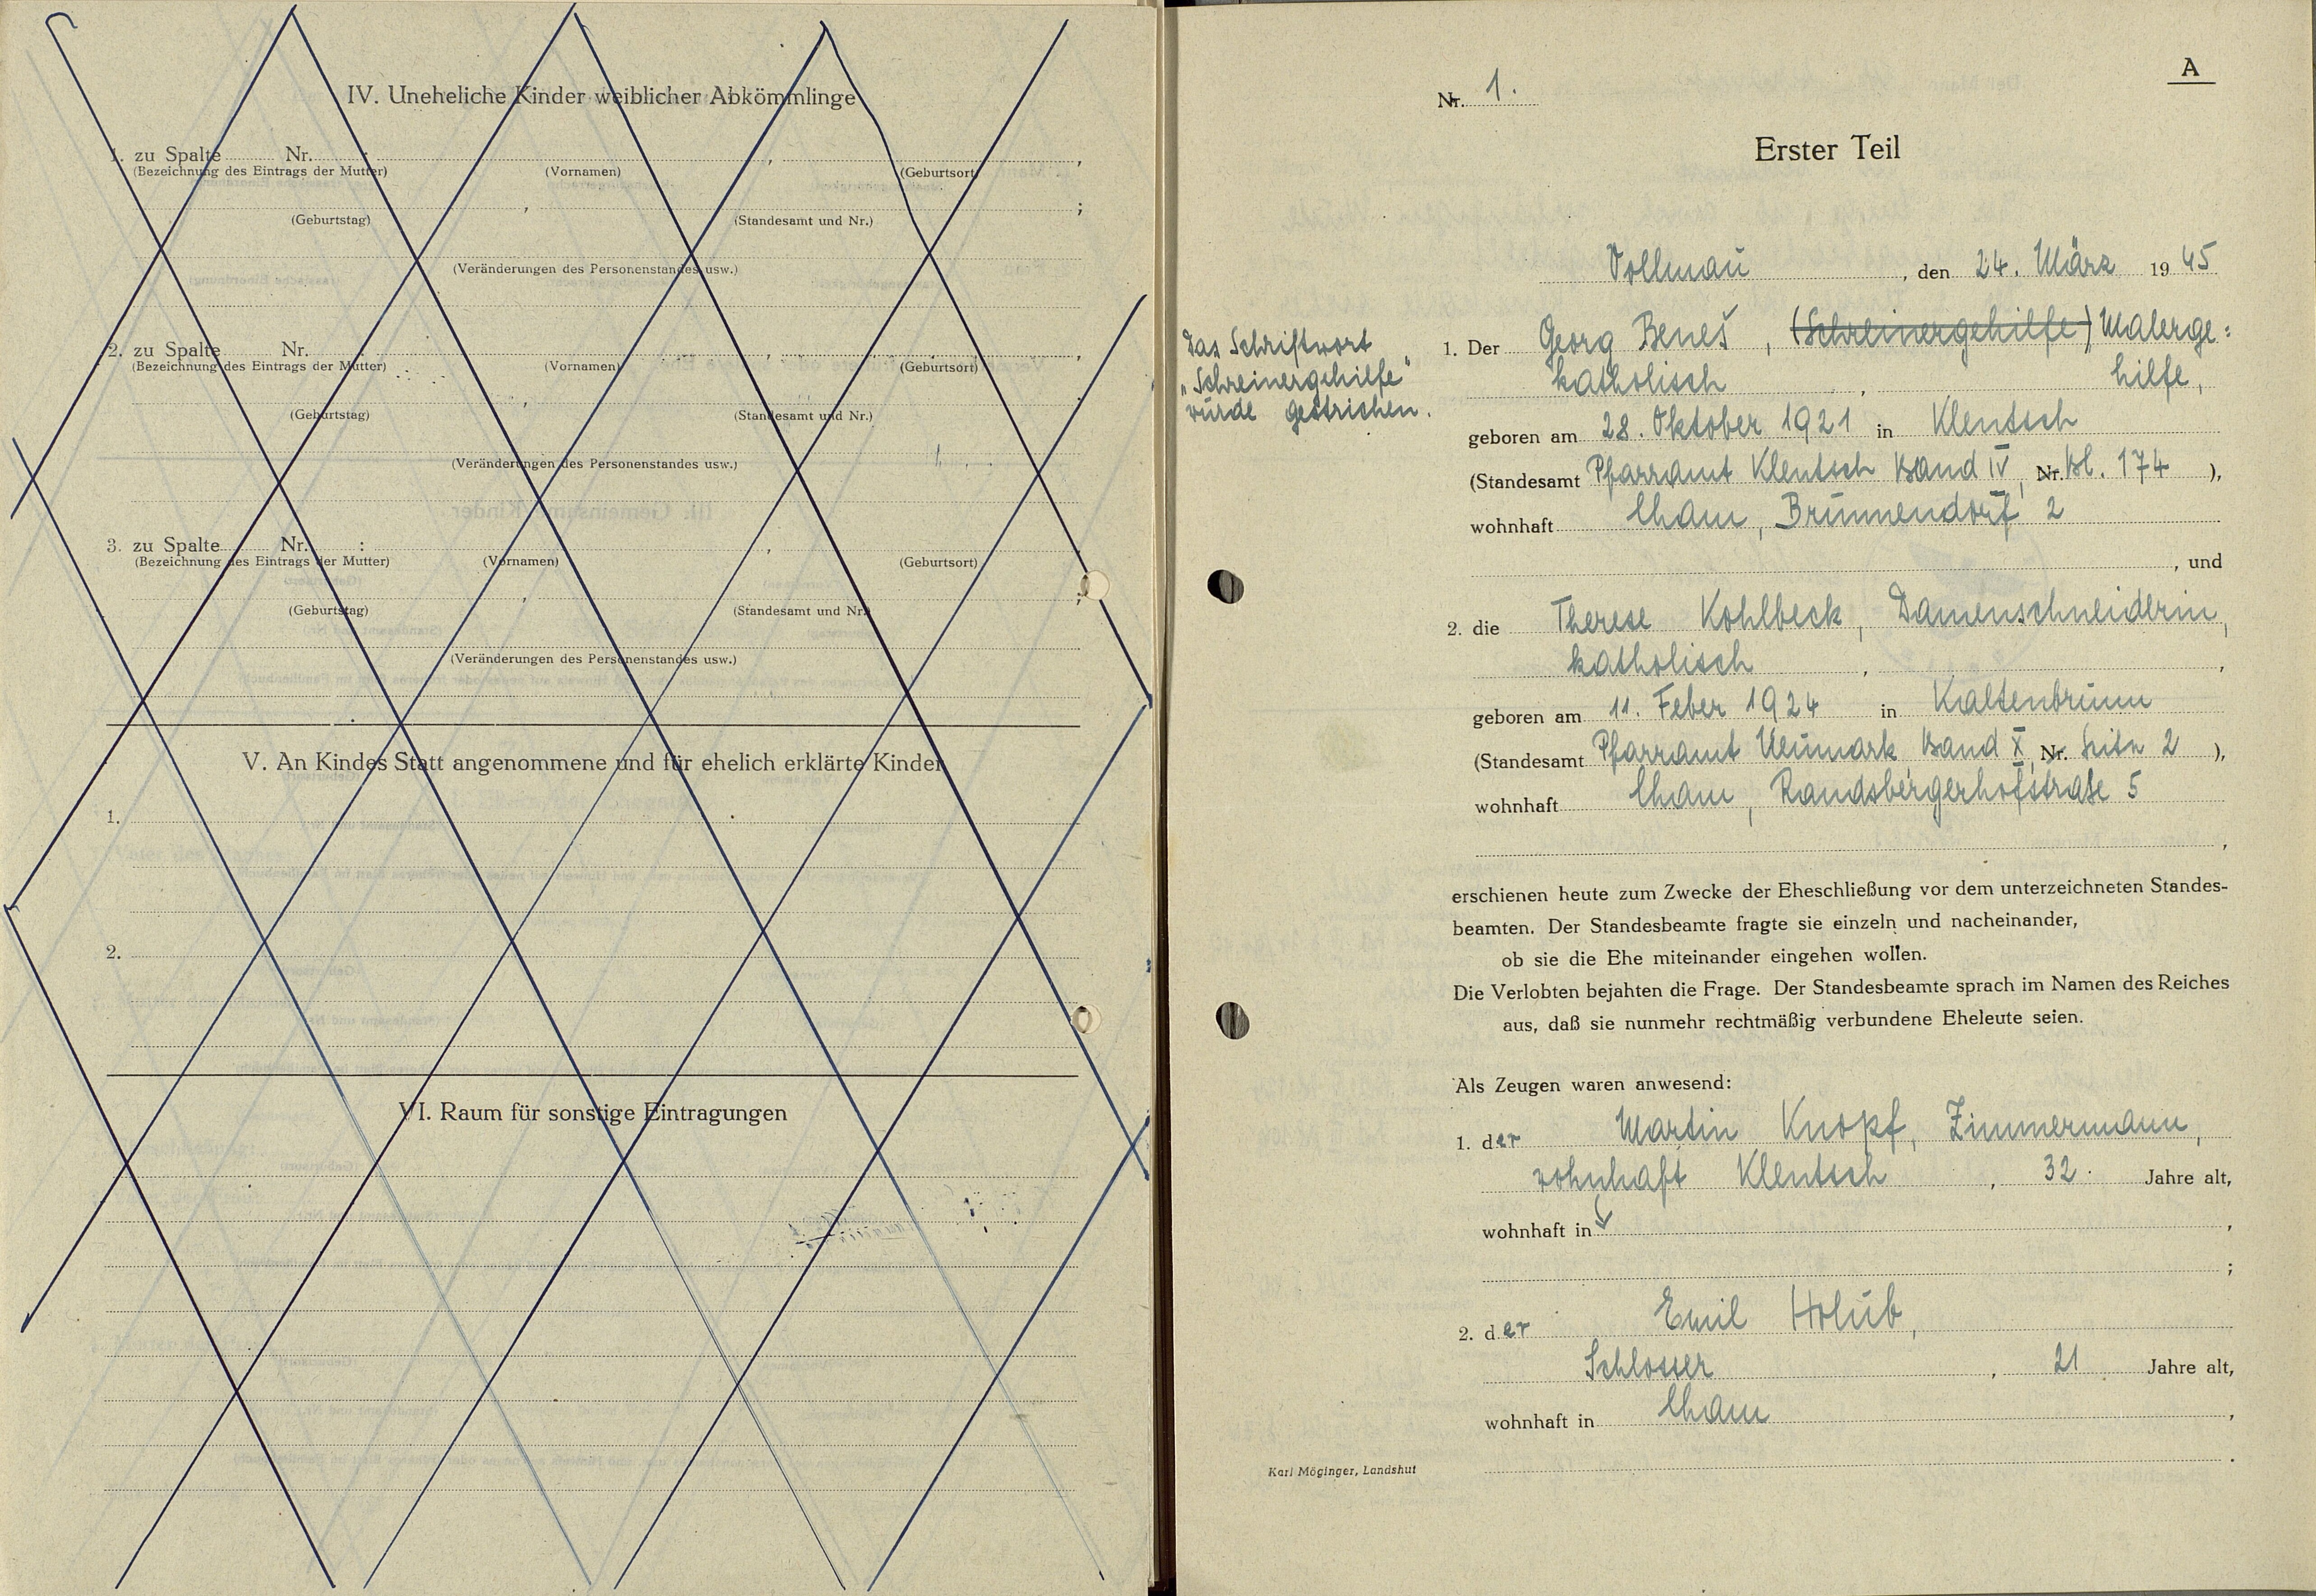 IV. Uneheliche Kinder weiblicher Abkömmlinge
1. zu Spalte Nr. : , ,
(Bezeichnung des Eintrags der Mutter) (Vornamen) (Geburtsort)
, ;
(Geburtstag) (Standesamt und Nr.)
(Veränderungen des Personenstandes usw.)
2. zu Spalte Nr. : , ,
(Bezeichnung des Eintrags der Mutter) (Vornamen) (Geburtsort)
, ;
(Geburtstag) (Standesamt und Nr.)
(Veränderungen des Personenstandes usw.)
3. zu Spalte Nr. : , ,
(Bezeichnung des Eintrags der Mutter) (Vornamen) (Geburtsort)
, ;
(Geburtstag) (Standesamt und Nr.)
(Veränderungen des Personenstandes usw.)
V. An Kindes Statt angenommene und für ehelich erklärte Kinder
1.
2.
VI. Raum für sonstige Eintragungen
A
Nr. 1.
Erster Teil
Vollmau, den 24. März 1945
Das Schriftwort
"Schreinergehilfe"
wurde gestrichen.
1. Der Georg Beneš, (Schreinergehilfe) Malerge=
katholisch, hilfe,
geboren am 28. Oktober 1921 in Klentsch
(Standesamt Pfarramt Klentsch Band IV, Nr. Bl. 174 ),
wohnhaft Cham, Brunnendorf 2
, und
2. die Therese Kohlbeck, Damenschneiderin,
katholisch, ,
geboren am 11. Feber 1924 in Kaltenbrunn
(Standesamt Pfarramt Neumark Band X, Nr. Seite 2 ),
wohnhaft Cham, Randsbergerhofstraße 5
,
erschienen heute zum Zwecke der Eheschließung vor dem unterzeichneten Standes-
beamten. Der Standesbeamte fragte sie einzeln und nacheinander,
ob sie die Ehe miteinander eingehen wollen.
Die Verlobten bejahten die Frage. Der Standesbeamte sprach im Namen des Reiches
aus, daß sie nunmehr rechtmäßig verbundene Eheleute seien.
Als Zeugen waren anwesend:
1. der Martin Knopf, Zimmermann,
wohnhaft Klentsch, 32 Jahre alt,
wohnhaft in ,
;
2. der Emil Holub,
Schlosser, 21 Jahre alt,
wohnhaft in Cham,
.
Karl Möginger, Landshut